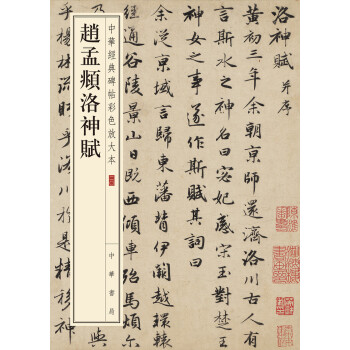 趙孟頫洛神賦
中華經典碑帖彩色放大本
中華書局
洛神賦 并序
黃初三年余朝京師還濟洛川古人有
言斯水之神名曰宓妃感宋玉對楚王
神女之事遂作斯賦其詞曰
余從京域言歸東藩背伊闕越轘轅
經通谷陵景山日既西傾車殆馬煩尒
與
乎楊林流眄乎洛川於是精移神